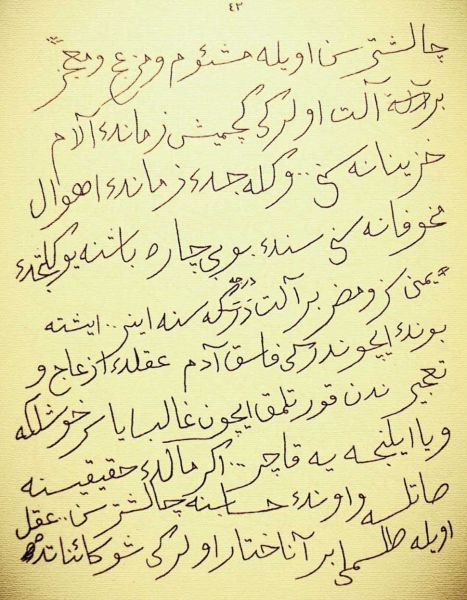 ٤٢
چالشدیررسن اویله مشئوم و مزعج و معجز
بر آلت اولرکی گچمیش زمانڭ آلام
حزینانه سنی .. و گله جك زمانڭ اهوال
مخوفانه سنی سنڭ بو بی چاره باشڭه یوکلتەجك
یمنسز و مضر بر آلت درکه سنه اینر .. ایشته
بونڭ ایچوندرکی فاسق آدم عقلڭ ازعاج و
تعجیزندن قورتلمق ایچون غالبا یا سرخوشلغه
ویا اگلنجه یه قاچر .. اگر مالك حقیقیسنه
صاتلسه و اونڭ حسابنه چالشدیررسن .. عقل
اویله طلسملی بر آناختار اولرکی شو کائناتده